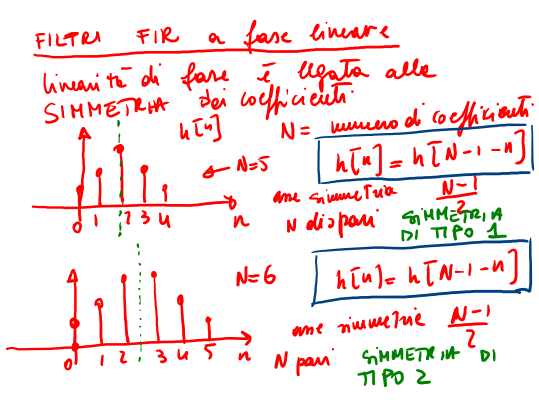 FILTRI FIR a fase lineare
linearità di fase è legata alla
SIMMETRIA dei coefficienti
h[n] N = numero di coefficienti
h[n] = h[N-1-n]
N=5
asse simmetria N-1/2
N dispari SIMMETRIA DI TIPO 1
0 1 2 3 4 n
N=6
h[n] = h[N-1-n]
asse simmetrie N-1/2
N pari SIMMETRIA DI TIPO 2
0 1 2 3 4 5 n